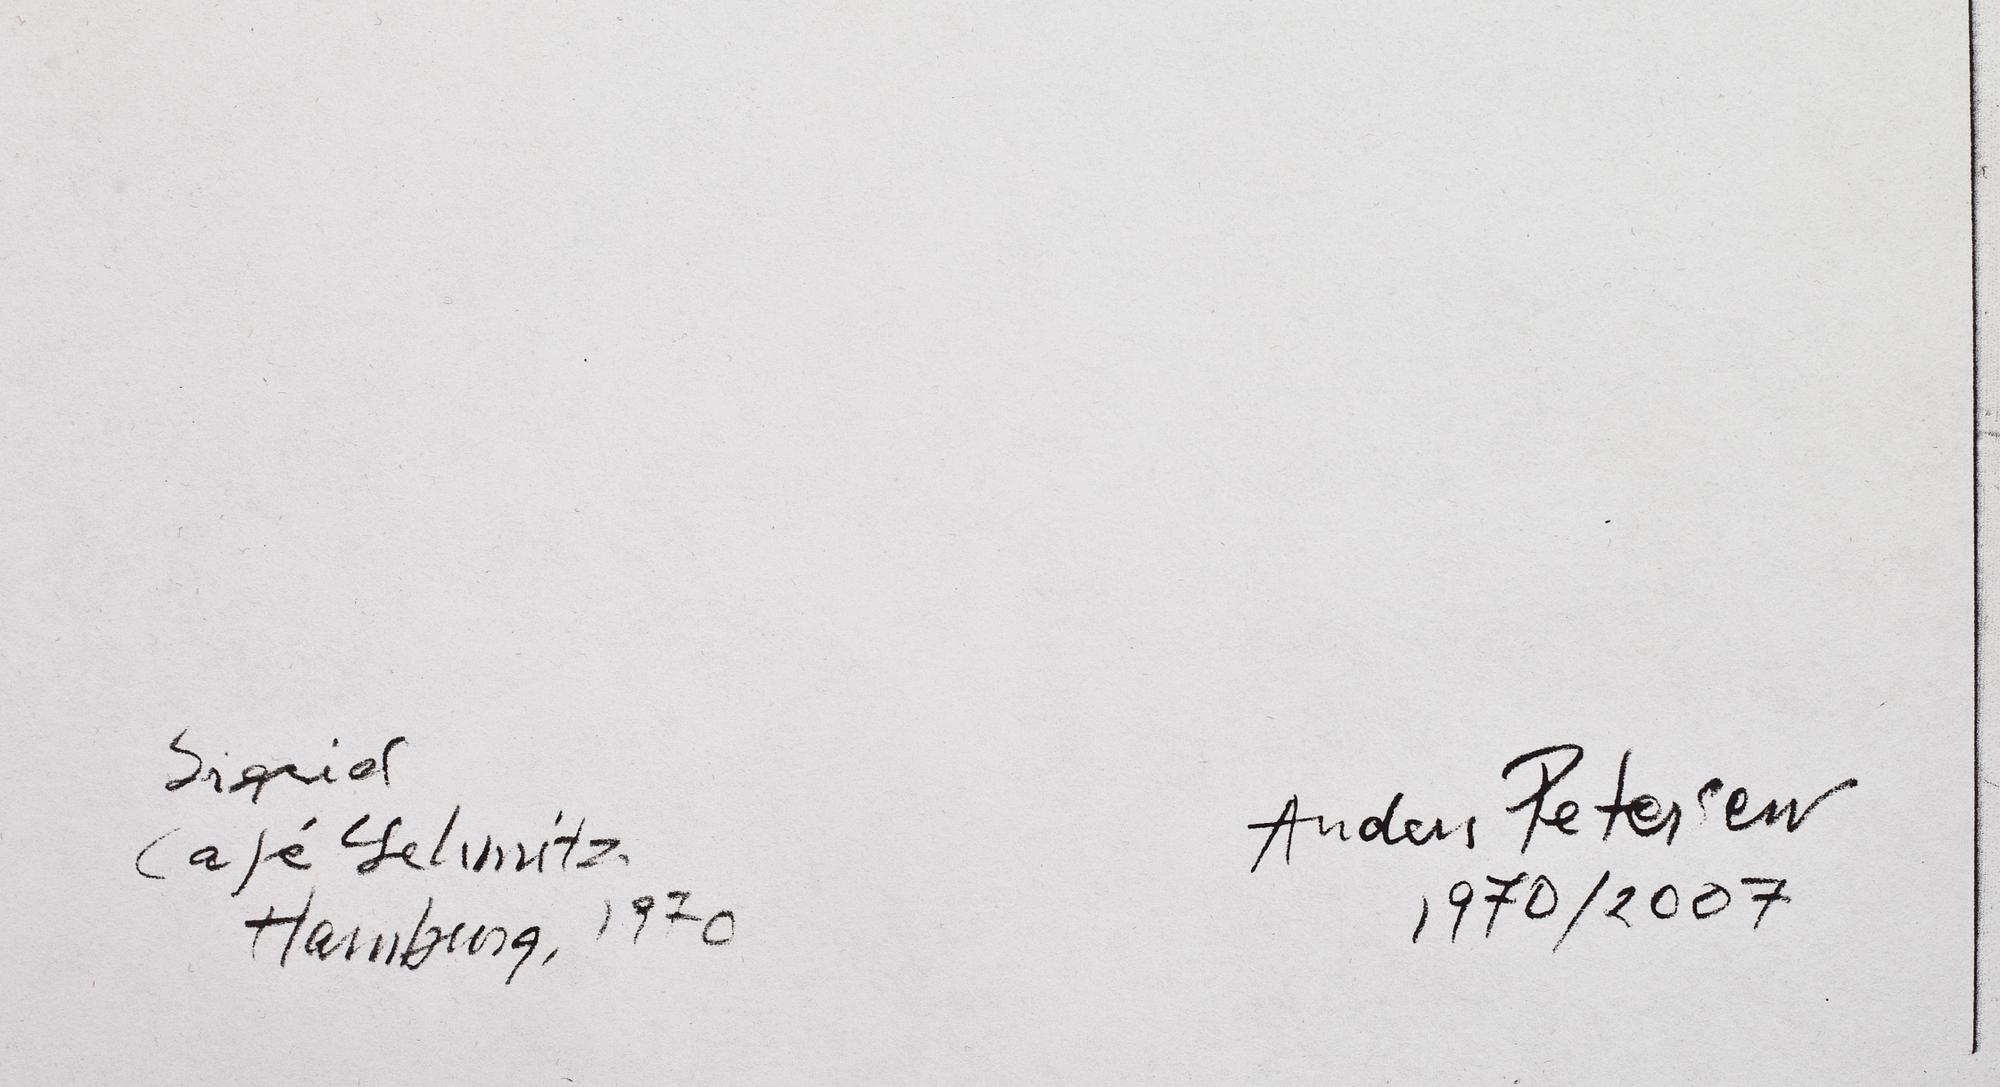 Sigrid
Café Lehmitz
Hamburg, 1970
Anders Petersen
1970/2007